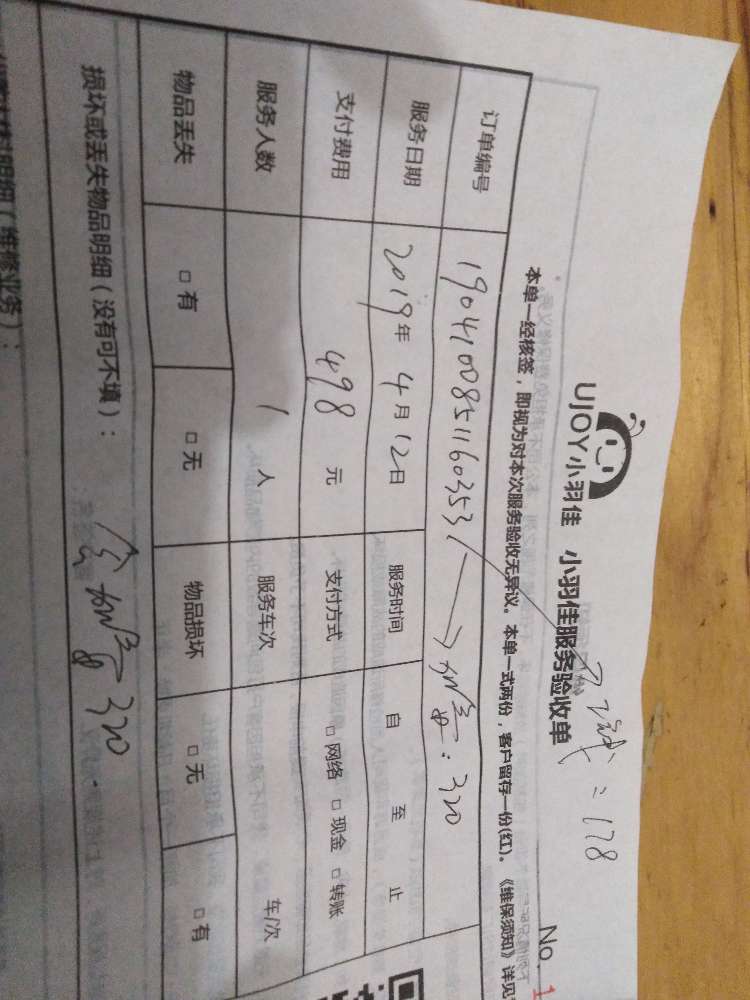 UJOY小羽佳 小羽佳服务验收单
=178
No. 1
本单一经核签，即视为对本次服务验收无异议。本单一式两份，客户留存一份(红)。《维保须知》详见
订单编号 1904100851160353 : 320
服务日期 2019年4月12日 服务时间 自 至 止
支付费用 498 元 支付方式 □网络 □现金 □转账
服务人数 1 人 服务车次 车/次
物品丢失 □有 □无 物品损坏 □无 □有
损坏或丢失物品明细（没有可不填）：
320
明细（维修业务）：